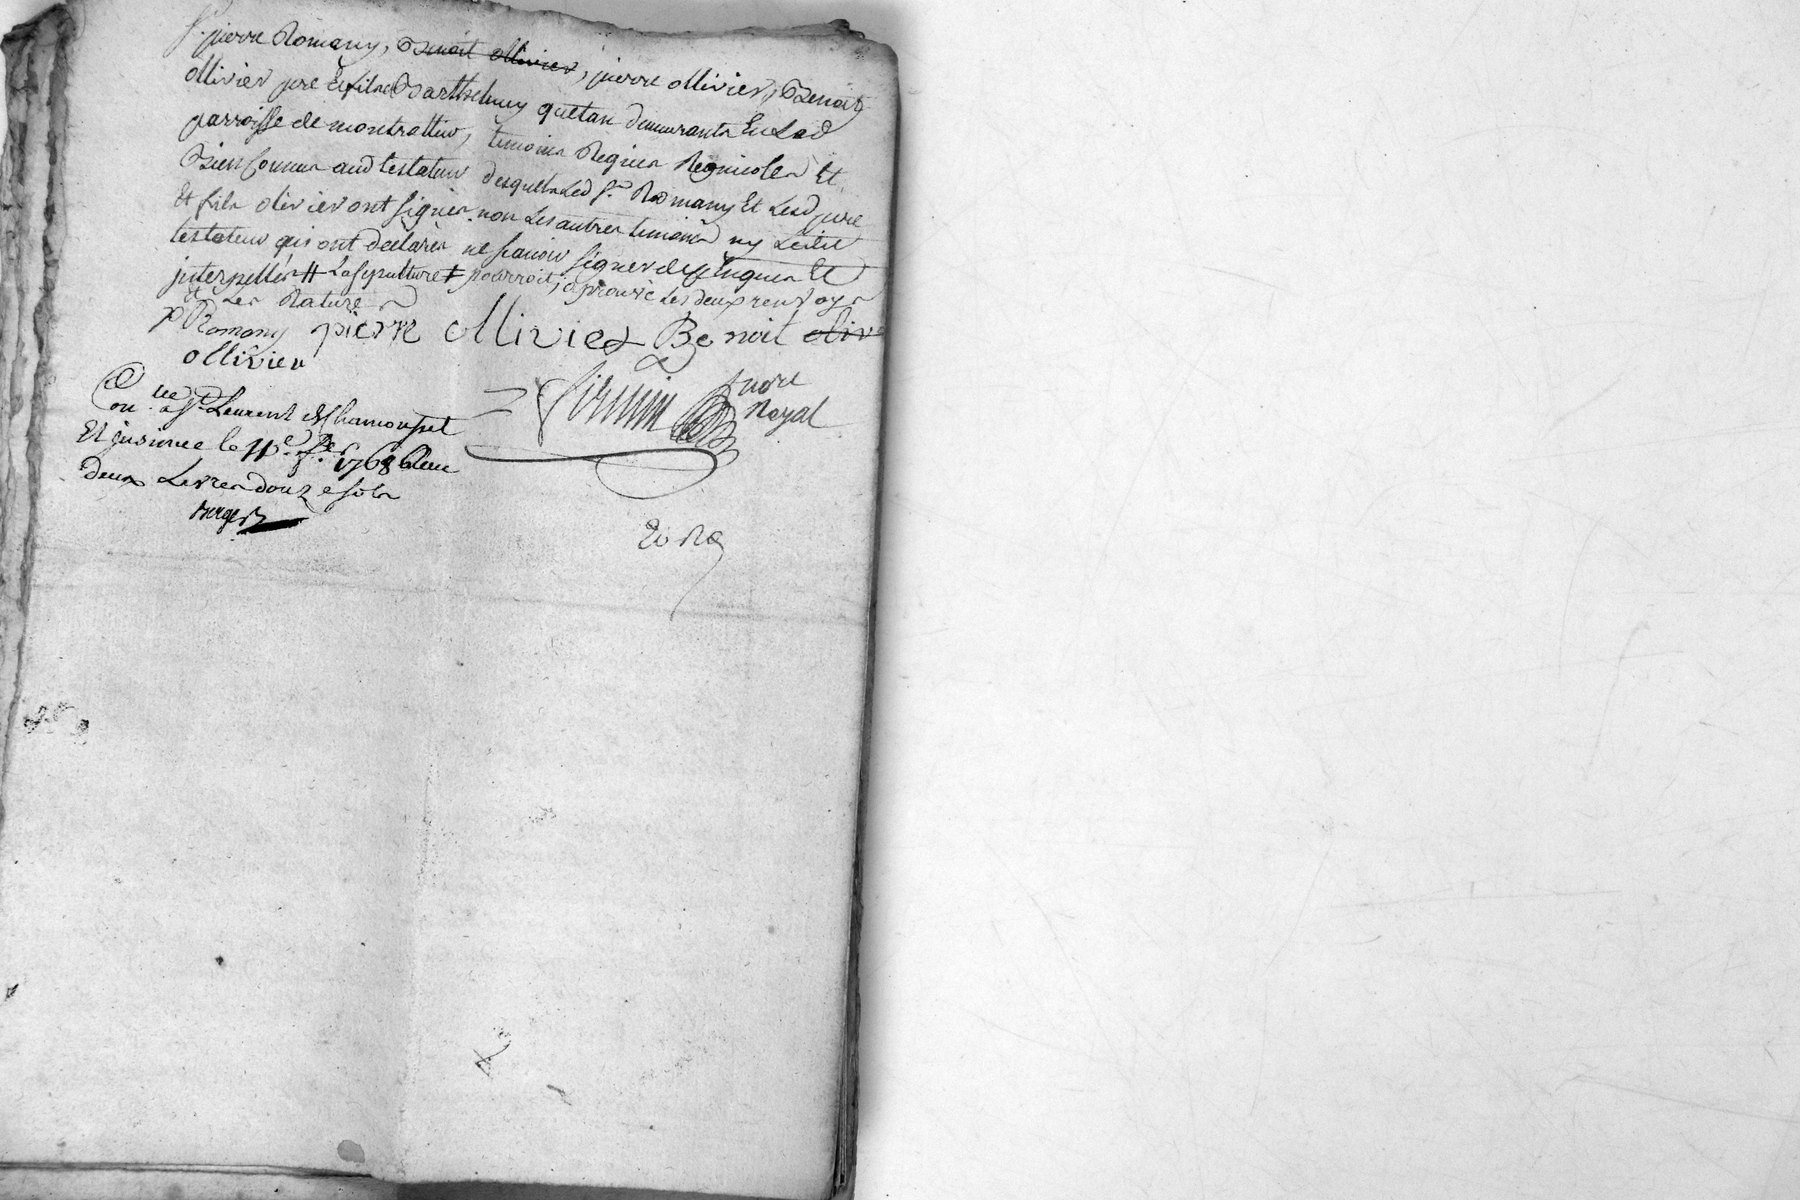 Sr. pierre Romany, Benoit ollivier, pierre ollivier, Benoit
ollivier pere Et fils Barthelemy quetan demeurants En Lad
parroisse de montrottier, temoins Requis Regnicoles Et
Bien Connus aud testateur desquels Led Sr. Romany Et Lesd pere
Et fils olivier ont signés non Les autres temoins ny Ledit
testateur qui ont declarés ne scavoir signer de ce Enquis Et
interpellés # La sepulture ‡ pourroit, aprouvé Les deux renvoys
Et Les Ratures
P Romany pierre ollivier Benoit oliv
ollivier
nore
Royal
Con.lle a St. Laurent de Chamousset
Et insinué le 11e 1768 Reçu
deux Livres douze sols